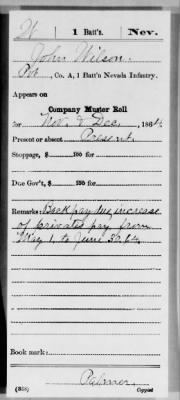 W | 1 Batt'n. | Nev.
John Wilson.
Pvt, Co. A, 1 Batt'n Nevada Infantry.
Appears on
Company Muster Roll
for Nov. & Dec., 1864.
Present or absent Present.
Stoppage, $ 100 for
Due Gov't, $ 100 for
Remarks: Back pay due, increase
of privates pay from
May 1, to June 30, 64.
Book mark:
Palmer
(358) Copyist